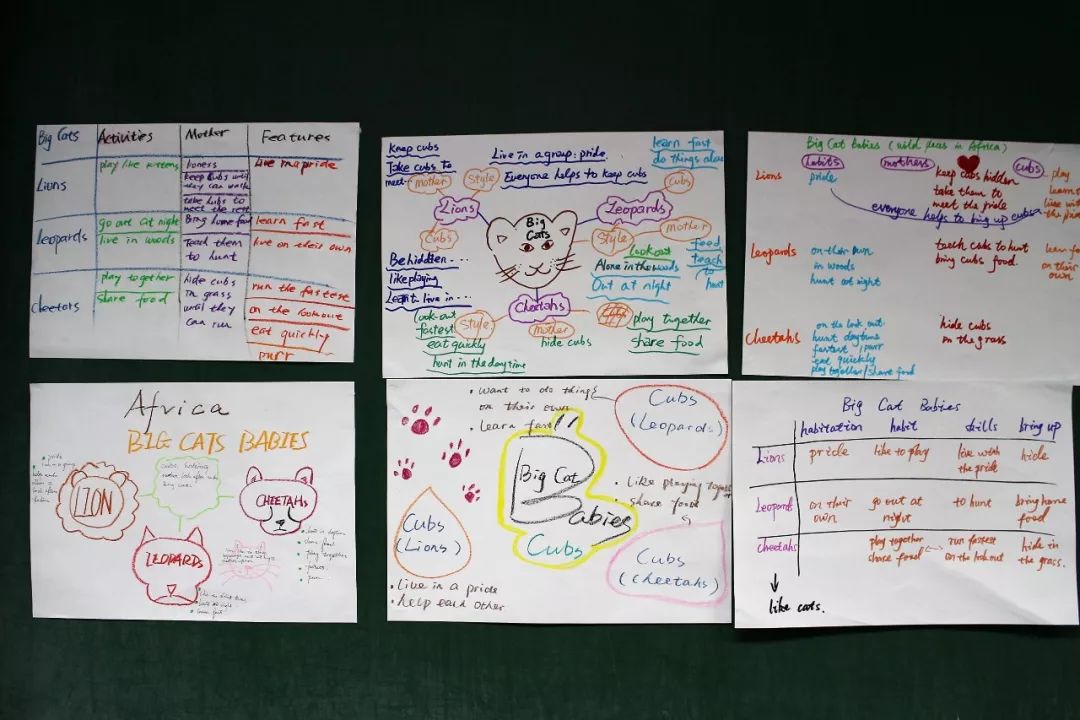 Big Cats Activities Mother Features
Lions
play like kittens
keep cubs until
they can walk
take cubs to
meet the rest
live in a pride
Leopards
go out at night
live in woods
Bring home food
Teach them
to hunt
learn fast
live on their own
Cheetats
play together
share food
hide cubs
in grass
until they
can run
run the fastest
on the lookout
eat quickly
purr
keep cubs
Take cubs to
meet
mother
Style
Live in a group: pride
Everyone helps to keep cubs
learn fast
do things alone
Cubs
Lions
Big
Cats
Leopards
Cubs
Style
mother
Be hidden...
like playing
Learn to live in...
Look-out
Alone in the woods
Out at night
feed
teach
to
hunt
Cheetahs
Look-out
fastest
eat quickly
hunt in the daytime
Style
mother
hide cubs
play together
share food
Big Cat Babies (wild in Africa)
habits mothers cubs
Lions
pride
keep cubs hidden
take them to
meet the pride
play
learn
live with
the pride
everyone helps to bring up cubs
Leopards
on their own
in woods
hunt at night
teach cubs to hunt
bring cubs food
learn
on their
own
Cheetahs
on the look out
hunt daytime
fastest / purr
eat quickly
play together/share food
hide cubs
on the grass
Africa
BIG CATS BABIES
pride
LION
CHEETAHS
LEOPARDS
share food
play together
• want to do things
on their own
• Learn fast
Cubs
(Leopards)
Big Cat
Babies
Cubs
• Like playing
• share food
Cubs
(Lions)
Cubs
(Cheetahs)
• Live in a pride
• help each other
Big Cat Babies
habitation habit skills bring up
Lions pride like to play live with
the pride hide
Leopards on their
own go out at
night to hunt bring home
food
Cheetahs play together
share food run fastest
on the lookout hide in
the grass.
like cats.